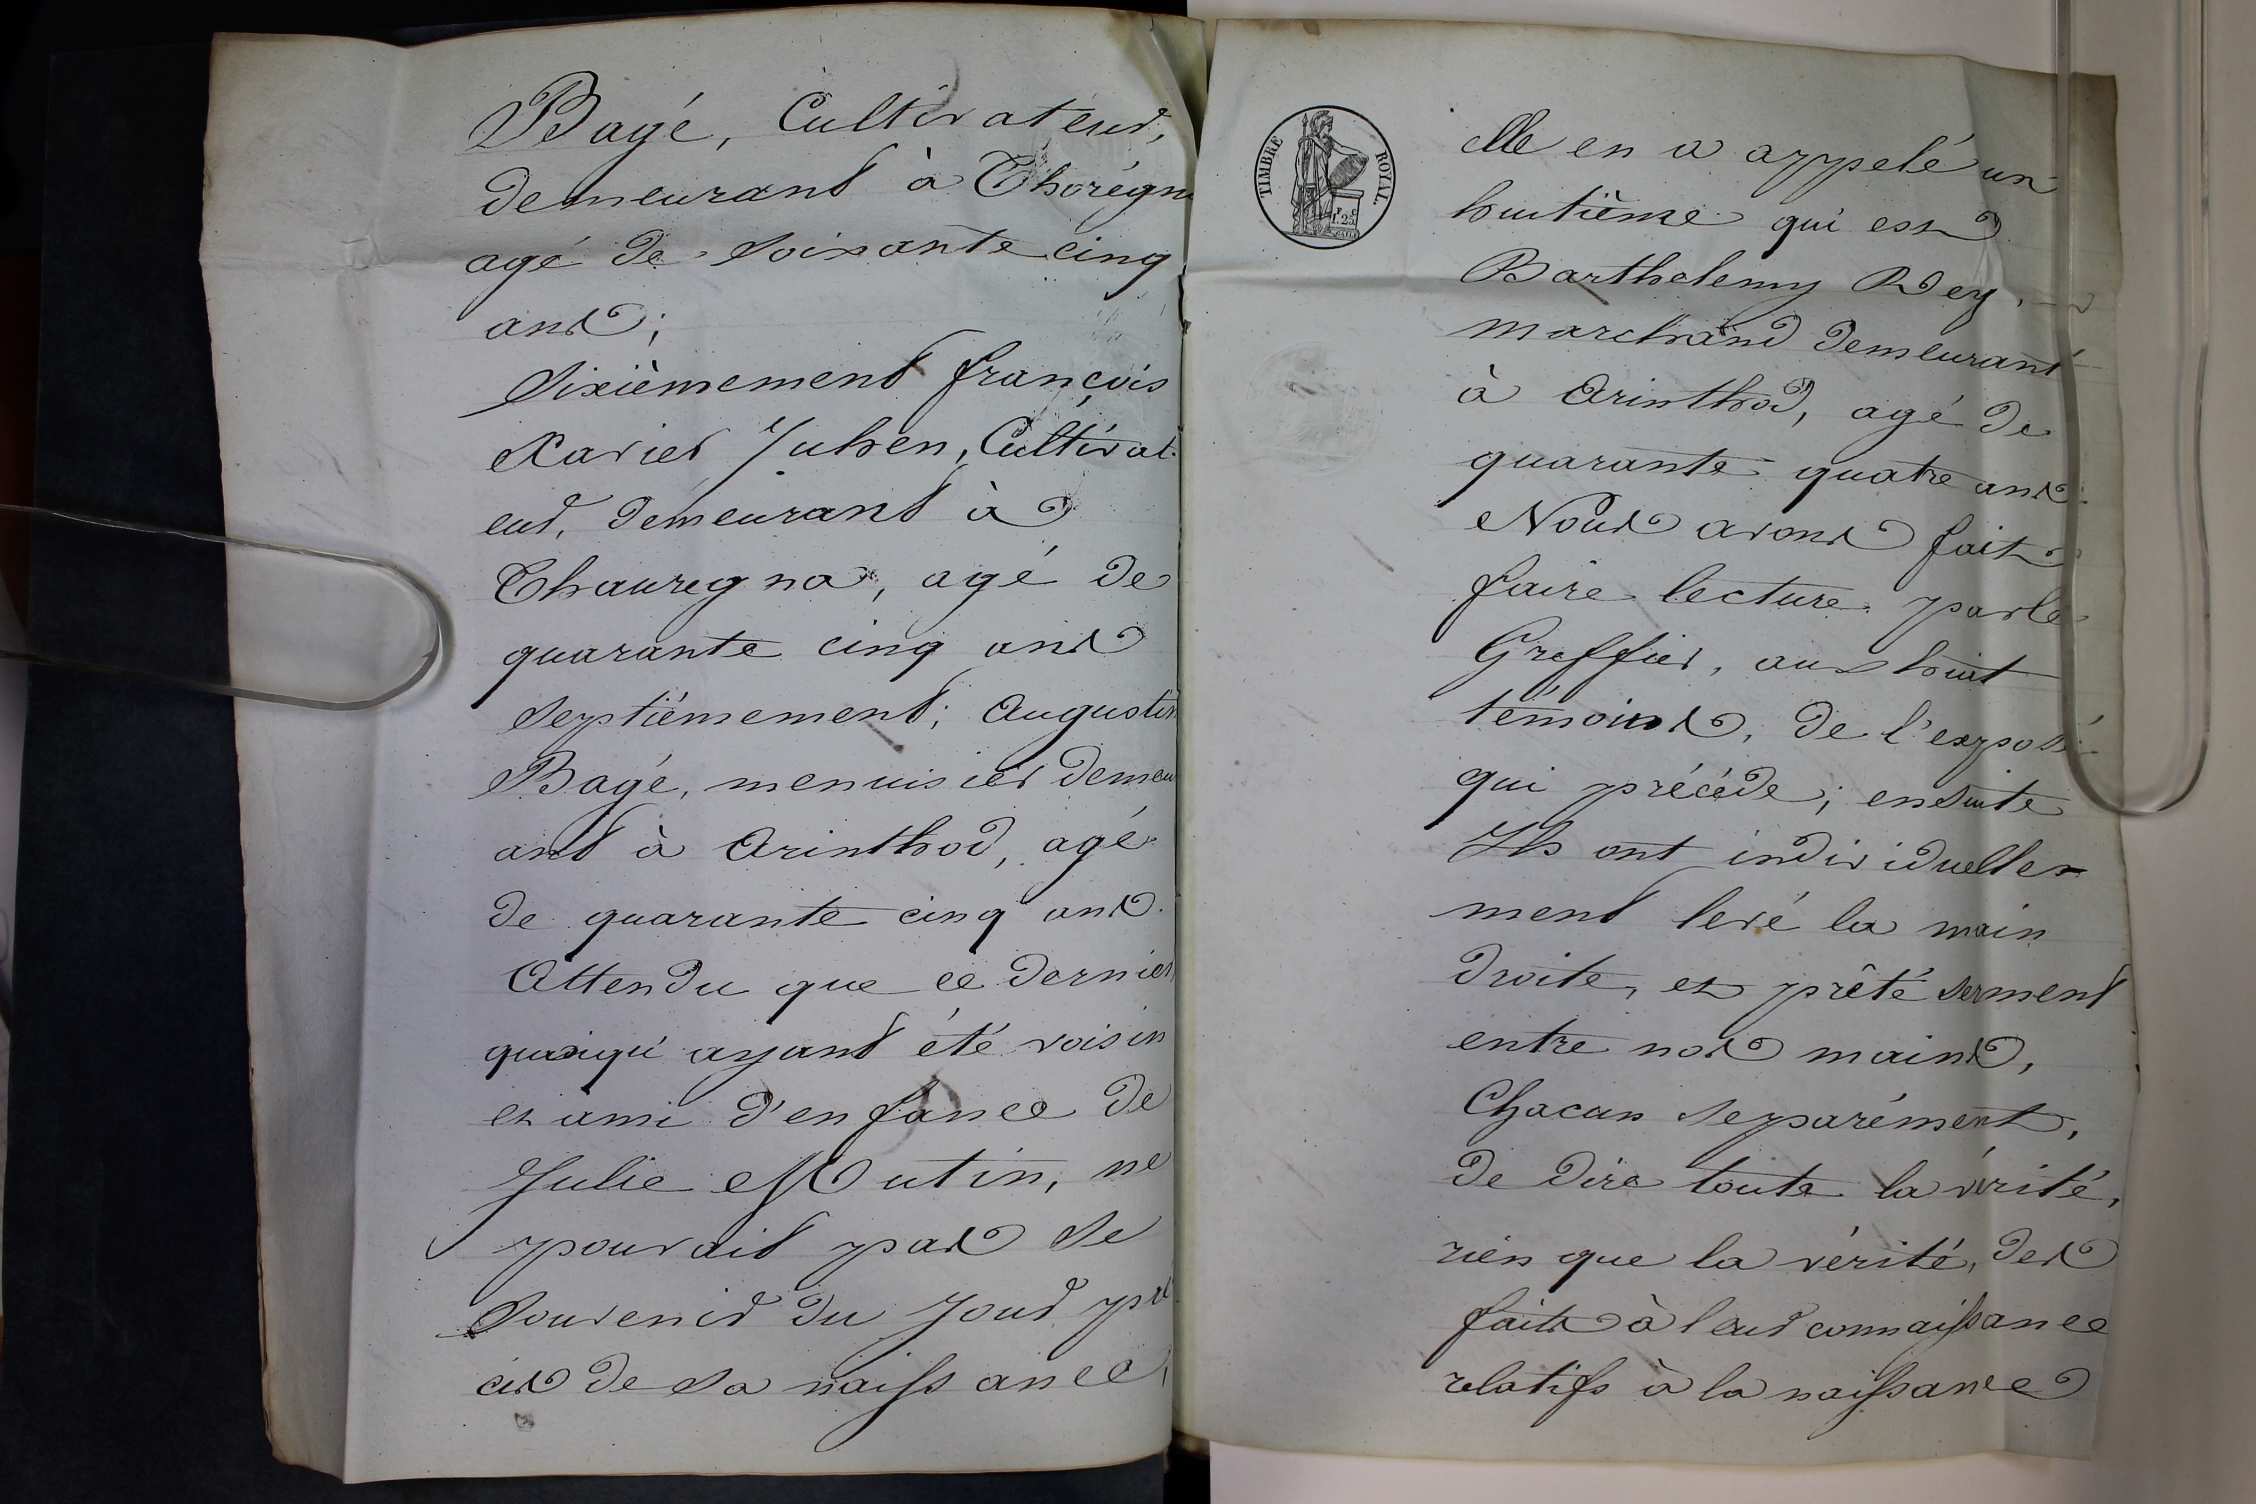 Bagé, Cultivateur,
demeurant à Thorégn
agé de soixante cinq
ans;
Sixièmement françois
Xavier Julien, Cultivat
eur, demeurant à
Thauregna, agé de
quarante cinq ans
Septièmement; Augustin
Bagé, menuisier demeu
ant à Arinthod, agé
de quarante cinq ans.
Attendu que ce dernier
quoiqu'ayant été voisin
et ami d'enfance de
Julie Mutin, ne
pouvait pas se
souvenir du jour pré
cis de sa naissance,
TIMBRE ROYAL
1.25
elle en a appelé un
huitième qui est
Barthelemy Rey,
marchand demeurant
à Arinthod, agé de
quarante quatre ans.
Nous avons fait
faire lecture par le
Greffier, aux huit
témoins, de l'exposé
qui précède; ensuite
Ils ont individuelle
ment levé la main
droite, et prêté serment
entre nos mains,
Chacun separément,
de dire toute la vérité,
rien que la vérité, des
faits à leur connaissance
relatifs à la naissance